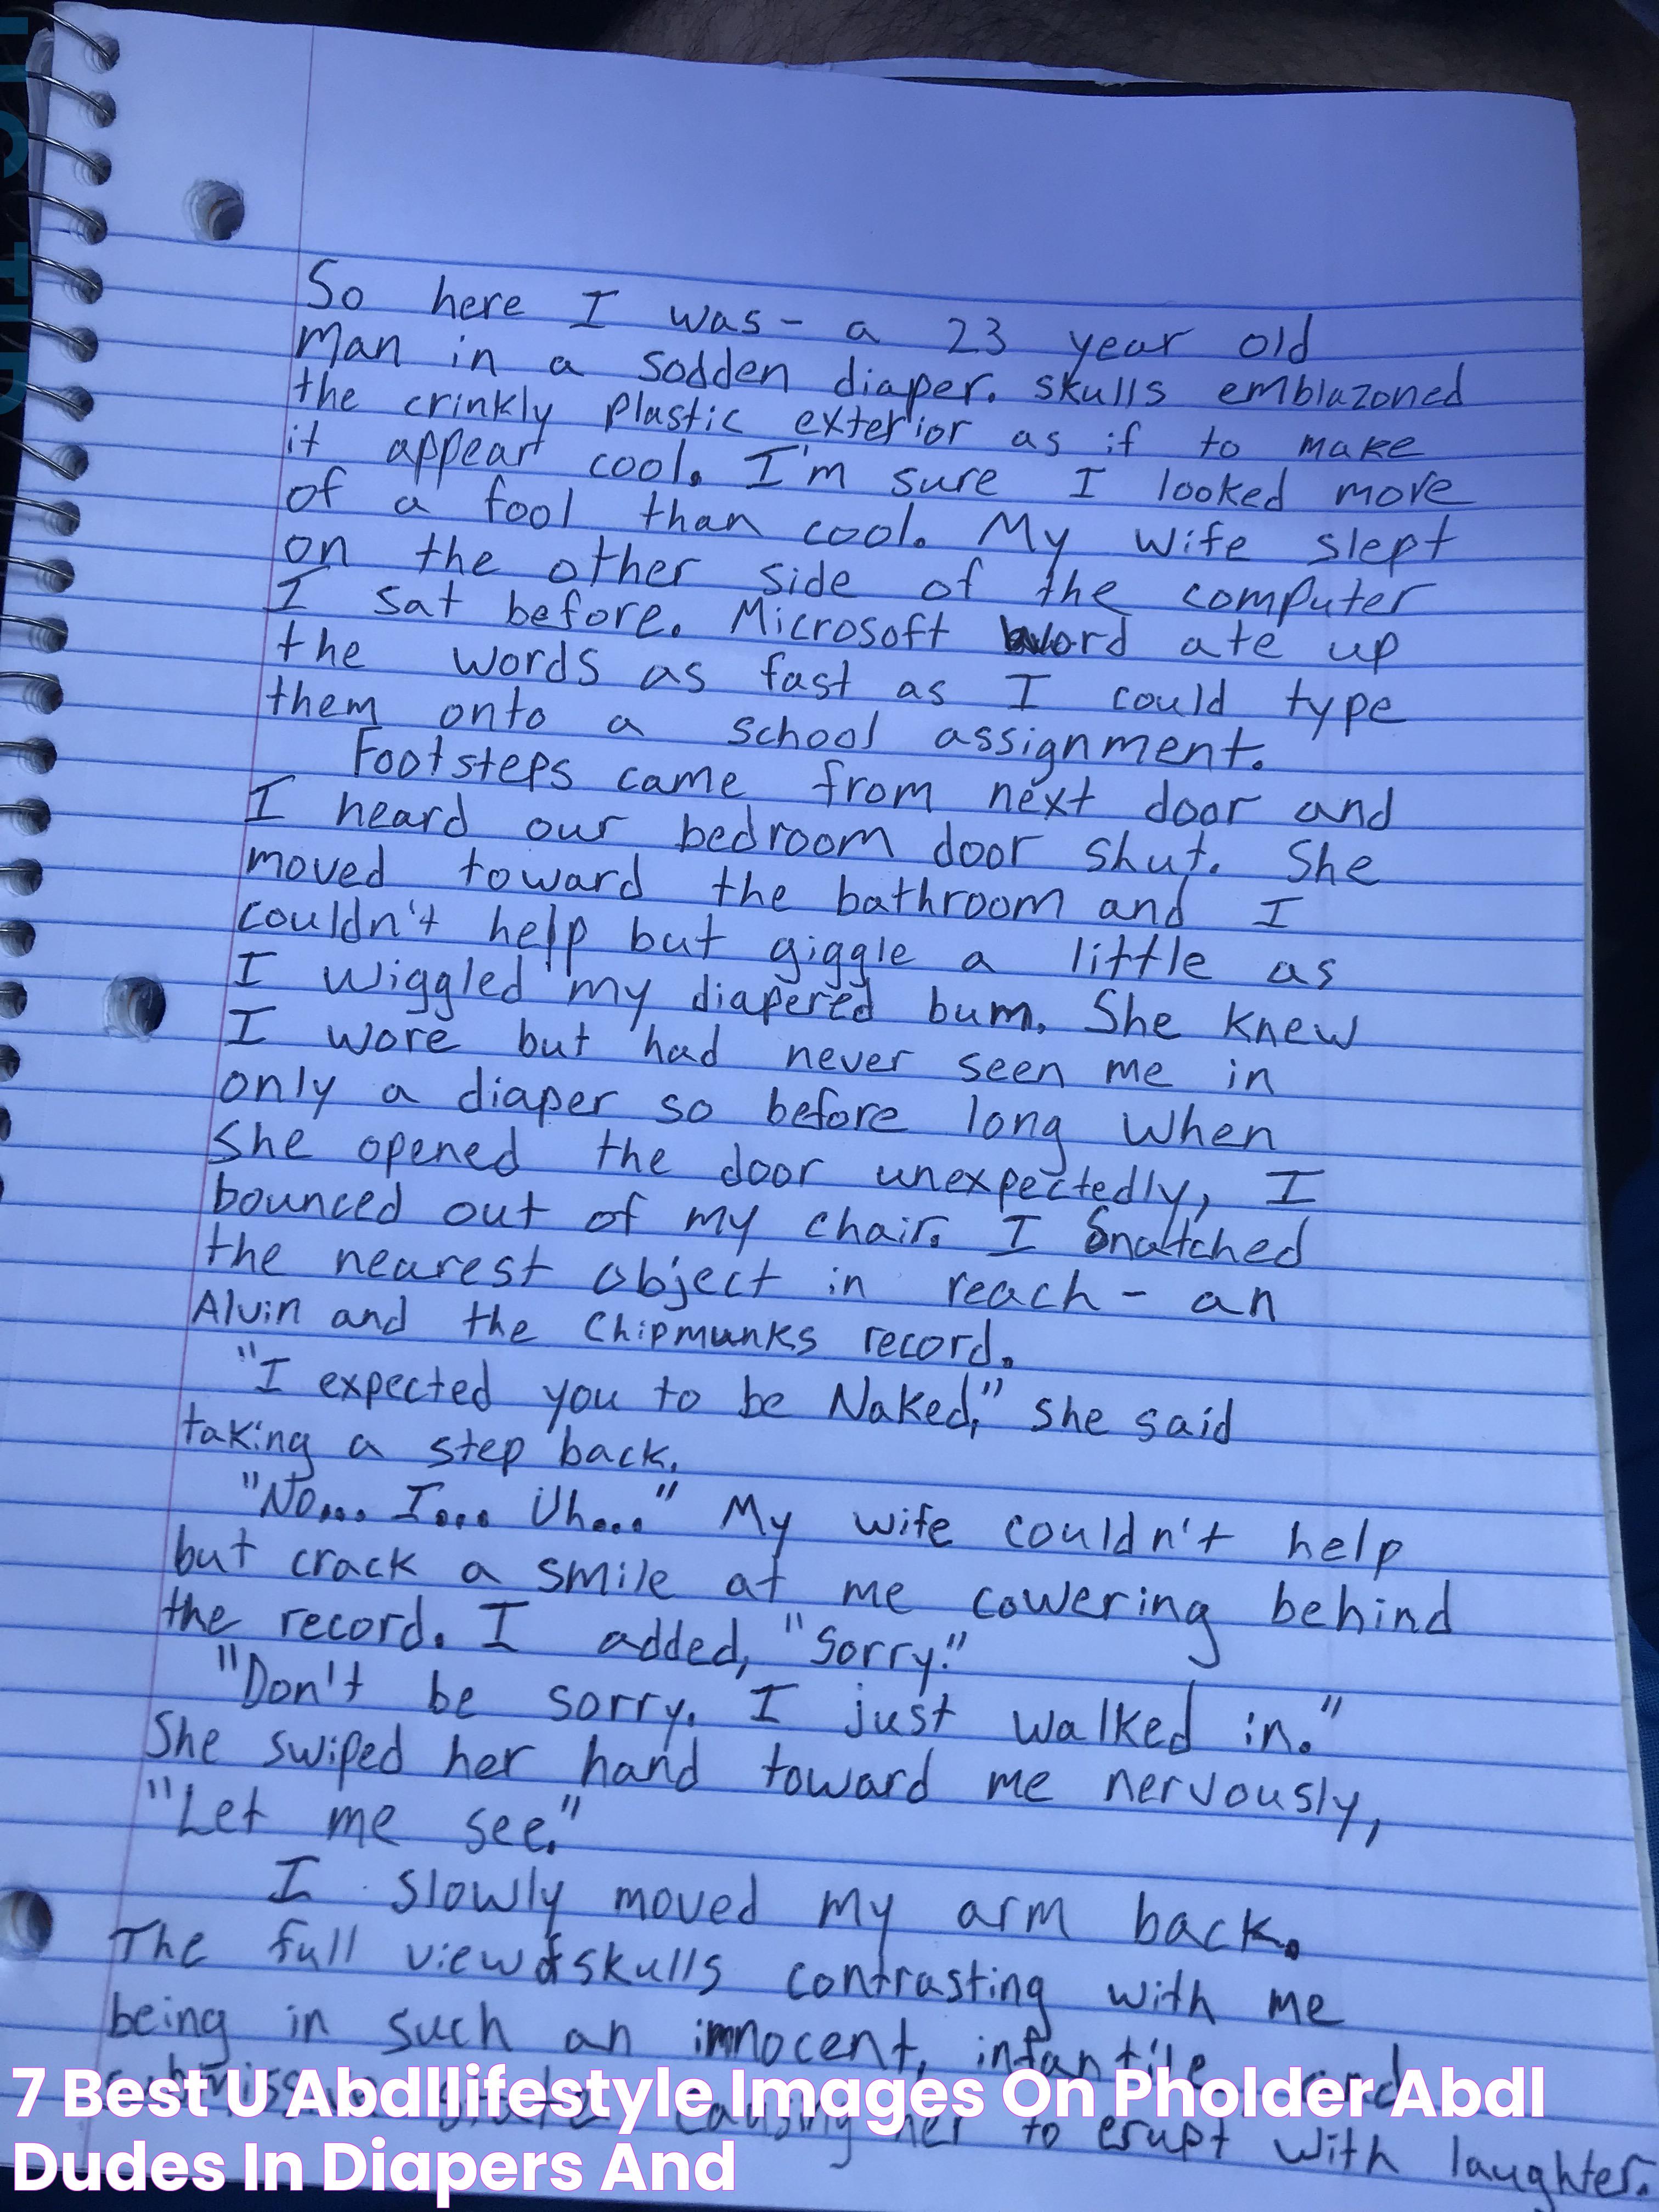 So here I was - a 23 year old
Man in a sodden diaper. skulls emblazoned
the crinkly plastic exterior as if to make
it appear cool. I'm sure I looked more
of a fool than cool. My wife slept
on the other side of the computer
I sat before. Microsoft Word ate up
the words as fast as I could type
them onto a school assignment.
Footsteps came from next door and
I heard our bedroom door shut. She
moved toward the bathroom and I
couldn't help but giggle a little as
I wiggled my diapered bum. She knew
I wore but had never seen me in
only a diaper so before long when
she opened the door unexpectedly, I
bounced out of my chair. I snatched
the nearest object in reach - an
Alvin and the Chipmunks record.
"I expected you to be Naked," she said
taking a step back.
"No... I... Uh..." My wife couldn't help
but crack a smile at me cowering behind
the record. I added, "Sorry."
"Don't be sorry. I just walked in."
She swiped her hand toward me nervously,
"Let me see."
I slowly moved my arm back.
The full view of skulls contrasting with me
being in such an innocent, infantile and
causing her to erupt with laughter.
7 Best U Abdllifestyle Images On Pholder Abdl
Dudes In Diapers And